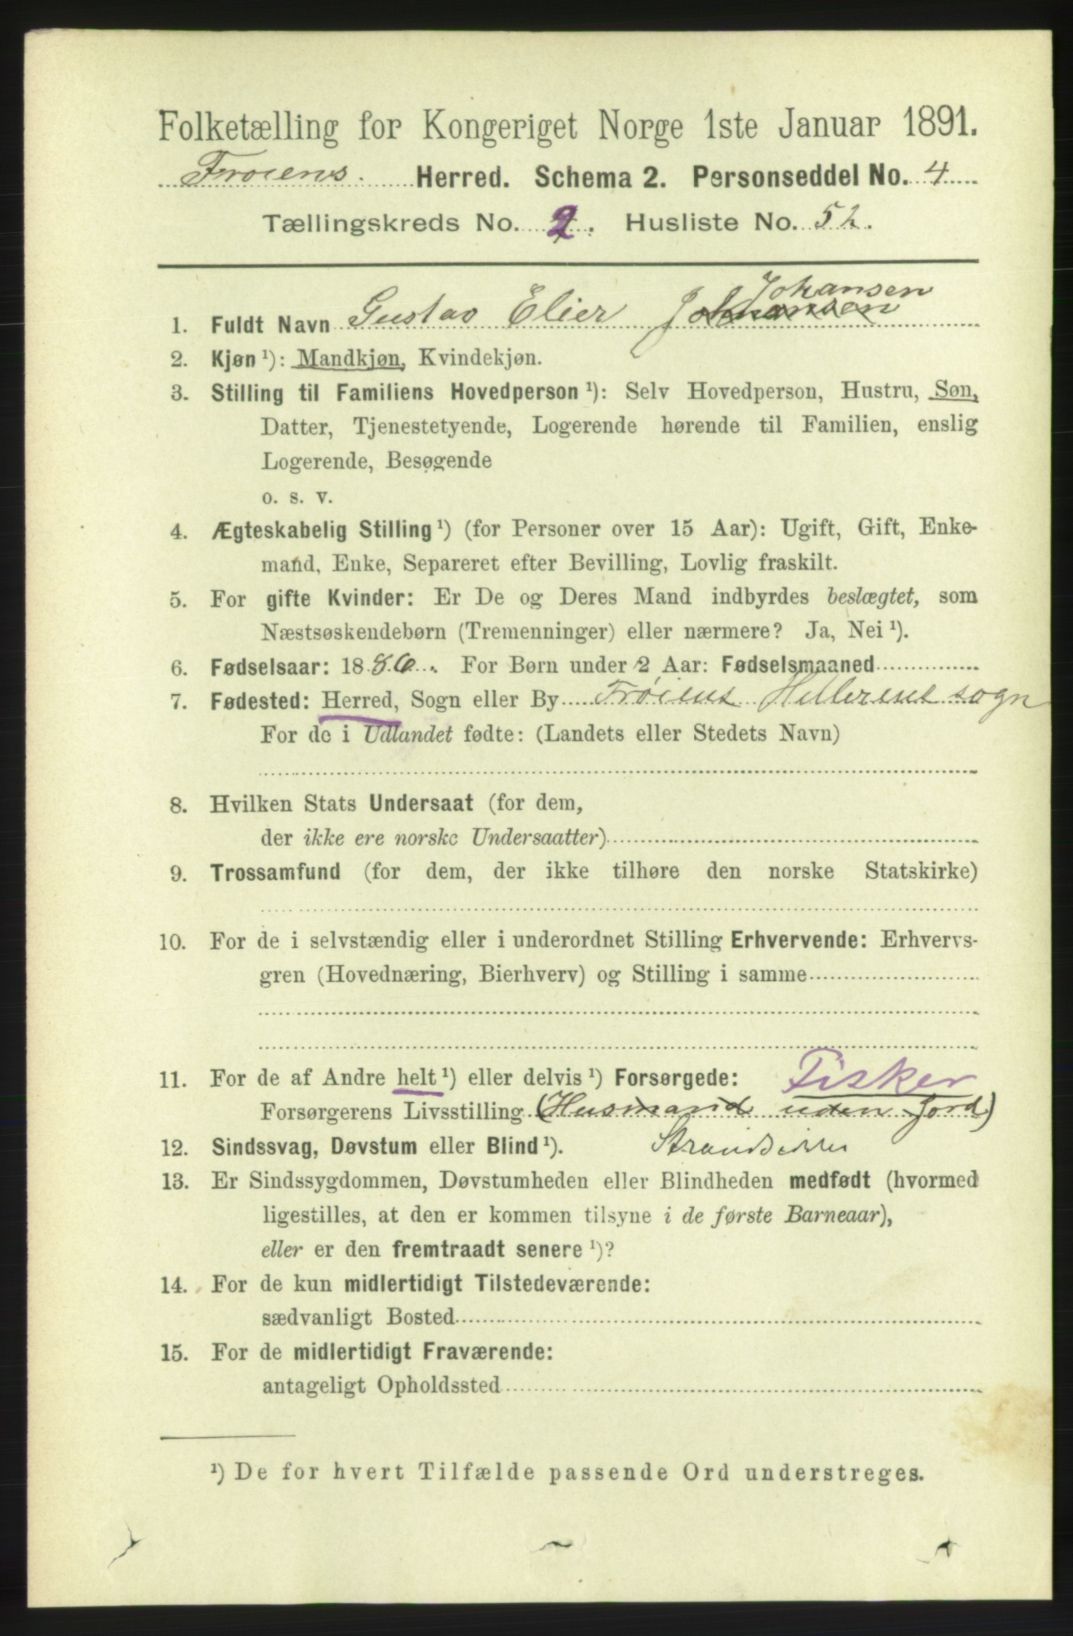 Folketælling for Kongeriget Norge 1ste Januar 1891.
Frøiens Herred. Schema 2. Personseddel No. 4
Tællingskreds No. 2. Husliste No. 52.
Johansen
1. Fuldt Navn Gustav Elier
2. Kjøn ¹): Mandkjøn, Kvindekjøn.
3. Stilling til Familiens Hovedperson ¹): Selv Hovedperson, Hustru, Søn,
Datter, Tjenestetyende, Logerende hørende til Familien, enslig
Logerende, Besøgende
o. s. v.
4. Ægteskabelig Stilling ¹) (for Personer over 15 Aar): Ugift, Gift, Enke-
mand, Enke, Separeret efter Bevilling, Lovlig fraskilt.
5. For gifte Kvinder: Er De og Deres Mand indbyrdes beslægtet, som
Næstsøskendebørn (Tremenninger) eller nærmere? Ja, Nei ¹).
6. Fødselsaar: 1886. For Børn under 2 Aar: Fødselsmaaned
7. Fødested: Herred, Sogn eller By Frøiens sogn
For de i Udlandet fødte: (Landets eller Stedets Navn)
8. Hvilken Stats Undersaat (for dem,
der ikke ere norske Undersaatter)
9. Trossamfund (for dem, der ikke tilhøre den norske Statskirke)
10. For de i selvstændig eller i underordnet Stilling Erhvervende: Erhvervs-
gren (Hovednæring, Bierhverv) og Stilling i samme
11. For de af Andre helt ¹) eller delvis ¹) Forsørgede: Fisker
Forsørgerens Livsstilling (Husmand uden Jord)
12. Sindssvag, Døvstum eller Blind ¹).
13. Er Sindssygdommen, Døvstumheden eller Blindheden medfødt (hvormed
ligestilles, at den er kommen tilsyne i de første Barneaar),
eller er den fremtraadt senere ¹)?
14. For de kun midlertidigt Tilstedeværende:
sædvanligt Bosted
15. For de midlertidigt Fraværende:
antageligt Opholdssted
¹) De for hvert Tilfælde passende Ord understreges.